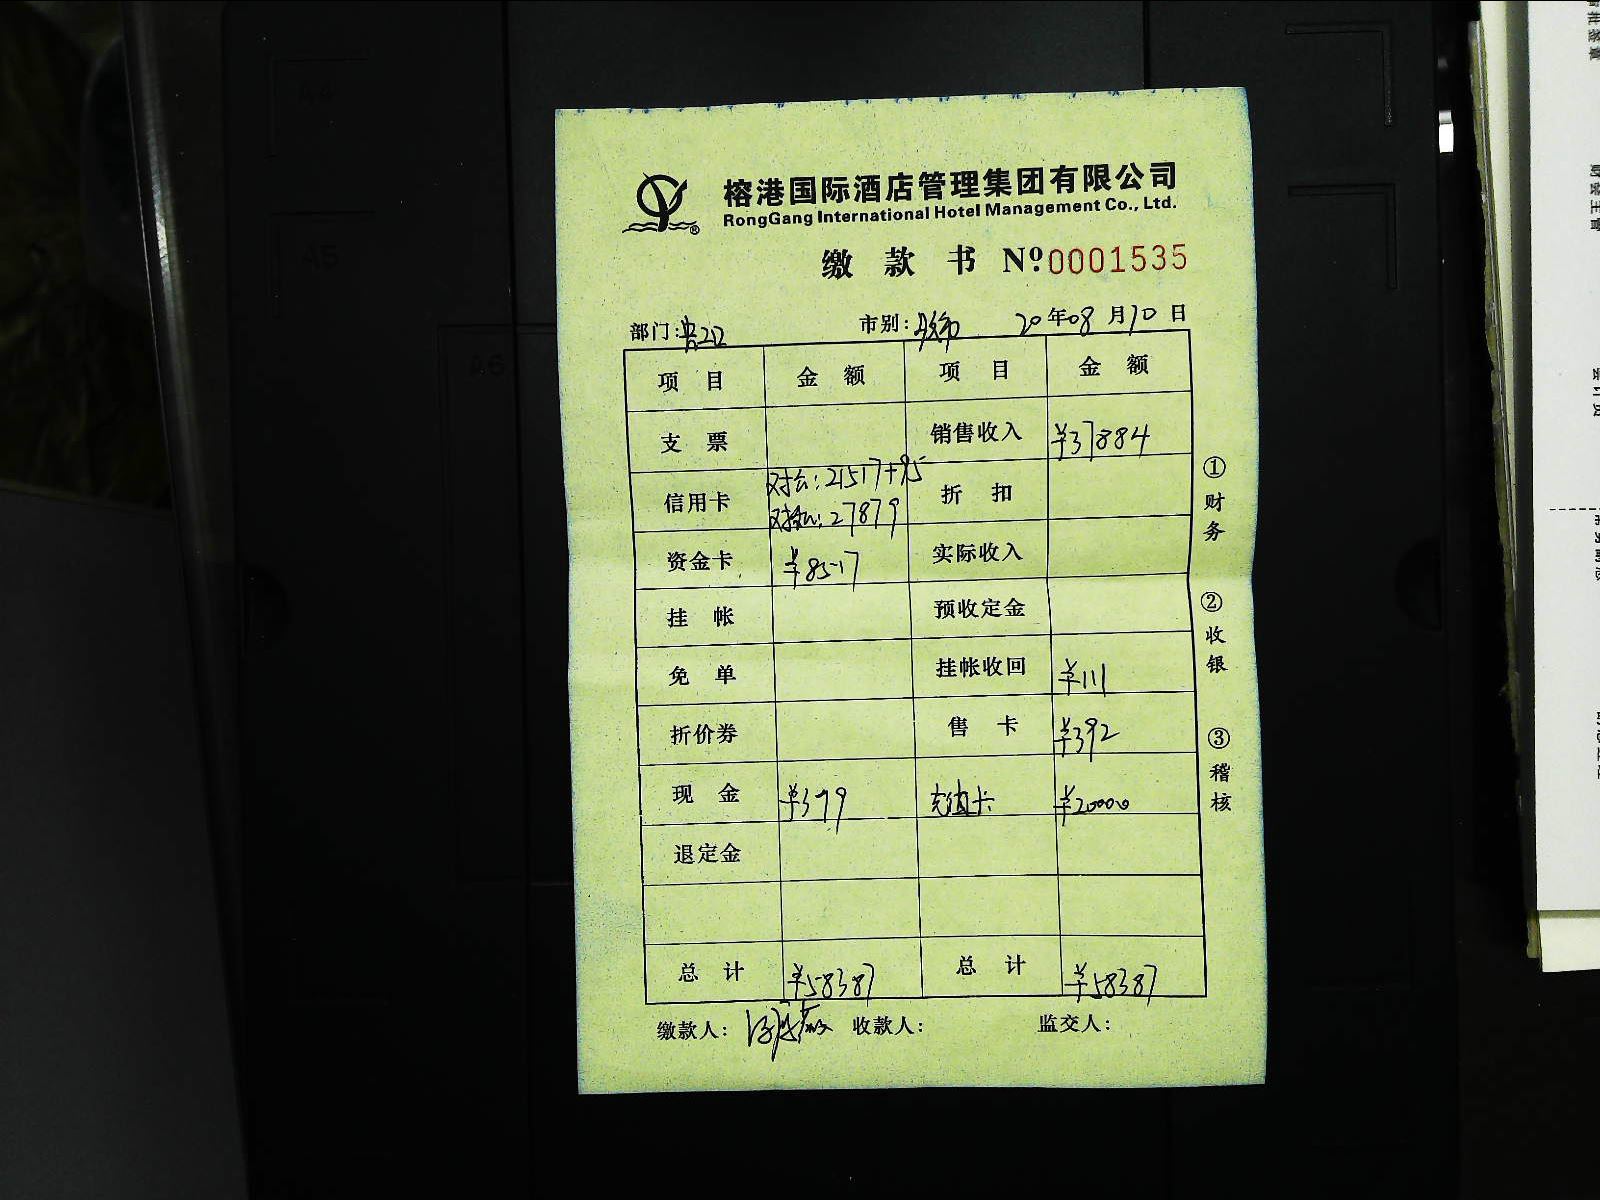 A4
A5
A6
榕港国际酒店管理集团有限公司
RongGang International Hotel Management Co., Ltd.
缴款书 Nº:0001535
部门: 市别: 20年08月10日
项目 金额 项目 金额
支票 销售收入 ¥37884
信用卡 对公:21517+95 折扣
对私:27879
资金卡 ¥8517 实际收入
挂帐 预收定金
免单 挂帐收回 ¥111
折价券 售卡 ¥392
现金 ¥379 充值卡 ¥20000
退定金
总计 ¥58387 总计 ¥58387
缴款人: 收款人: 监交人:
①财务
②收银
③稽核